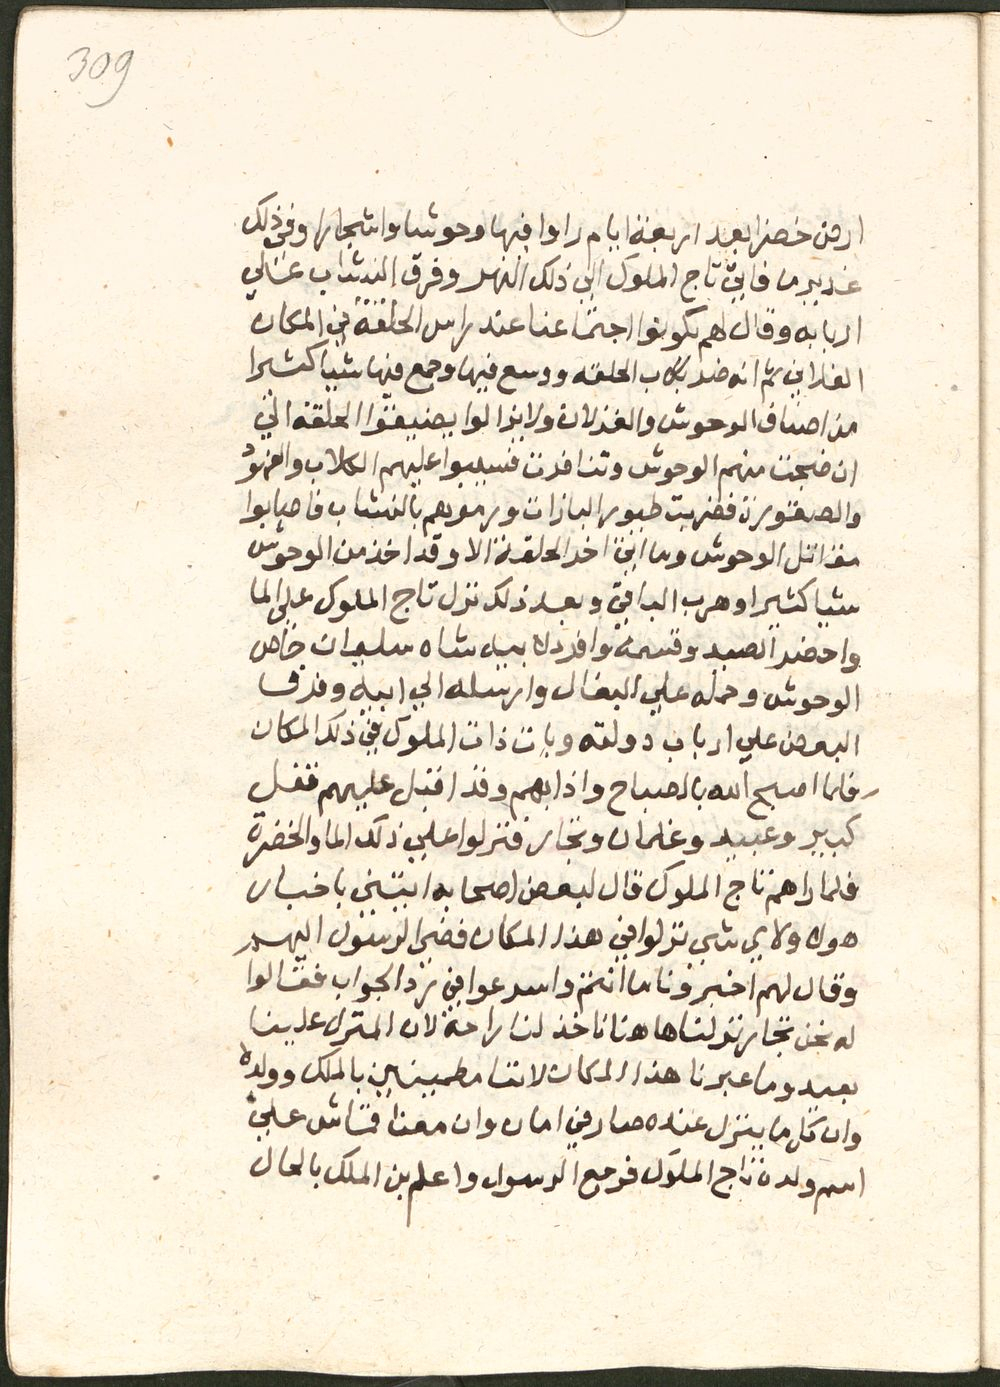 309
ارض خضرا بعد اربعة ايام راوا فيها وحوشا واشجارا وفي ذلك
غدير ما فاتي تاج الملوك الي ذلك النهر وفرق النشاب علي
اربابه وقال لهم يكونوا اجتماعنا عند راس الحلقة في المكان
الفلاني ثم انه ضرب الحلقه ووسع فيها وجمع فيها شيا كثيرا
من اصناف الوحوش والغزلان ولا يزالوا يضيقوا الحلقة الي
ان ضجت منهم الوحوش وتنافرت فسيبوا عليهم الكلاب والفهود
والصقورة فضربت طيور البازات ورموهم بالنشاب فاصابوا
مقاتل الوحوش وما اتي اخر الحلقة الا وقد اخذ من الوحوش
شيا كثيرا وهرب الباقي وبعد ذلك نزل تاج الملوك علي الما
واحضر الصيد وقسمه وافرد لابيه شاه سليمان خاص
الوحوش وحمله علي البغال وارسله الي ابيه وفرق
البعض علي ارباب دولته وبات تاج الملوك في ذلك المكان
فلما اصبح الله بالصباح واذا بهم وقد اقبل عليهم قفل
كبير وعبيد وغلمان وتجار فنزلوا علي ذلك الما والخضرة
فلما راهم تاج الملوك قال لبعض اصحابه ايتني باخبار
هولا ولاي شي نزلوا في هذا المكان فمضي الرسول اليهم
وقال لهم اخبرونا ما انتم واسرعوا في رد الجواب فقالوا
له نحن تجار نزلنا هاهنا ناخذ لنا راحة لان المنزل علينا
بعيد وما عبرنا هذا المكان لاننا مطمينين بالملك وولده
وان كل ما ينزل عنده صار في امان وان معنا قماش علي
اسم ولده تاج الملوك فرجع الرسول واعلم بن الملك بالحال